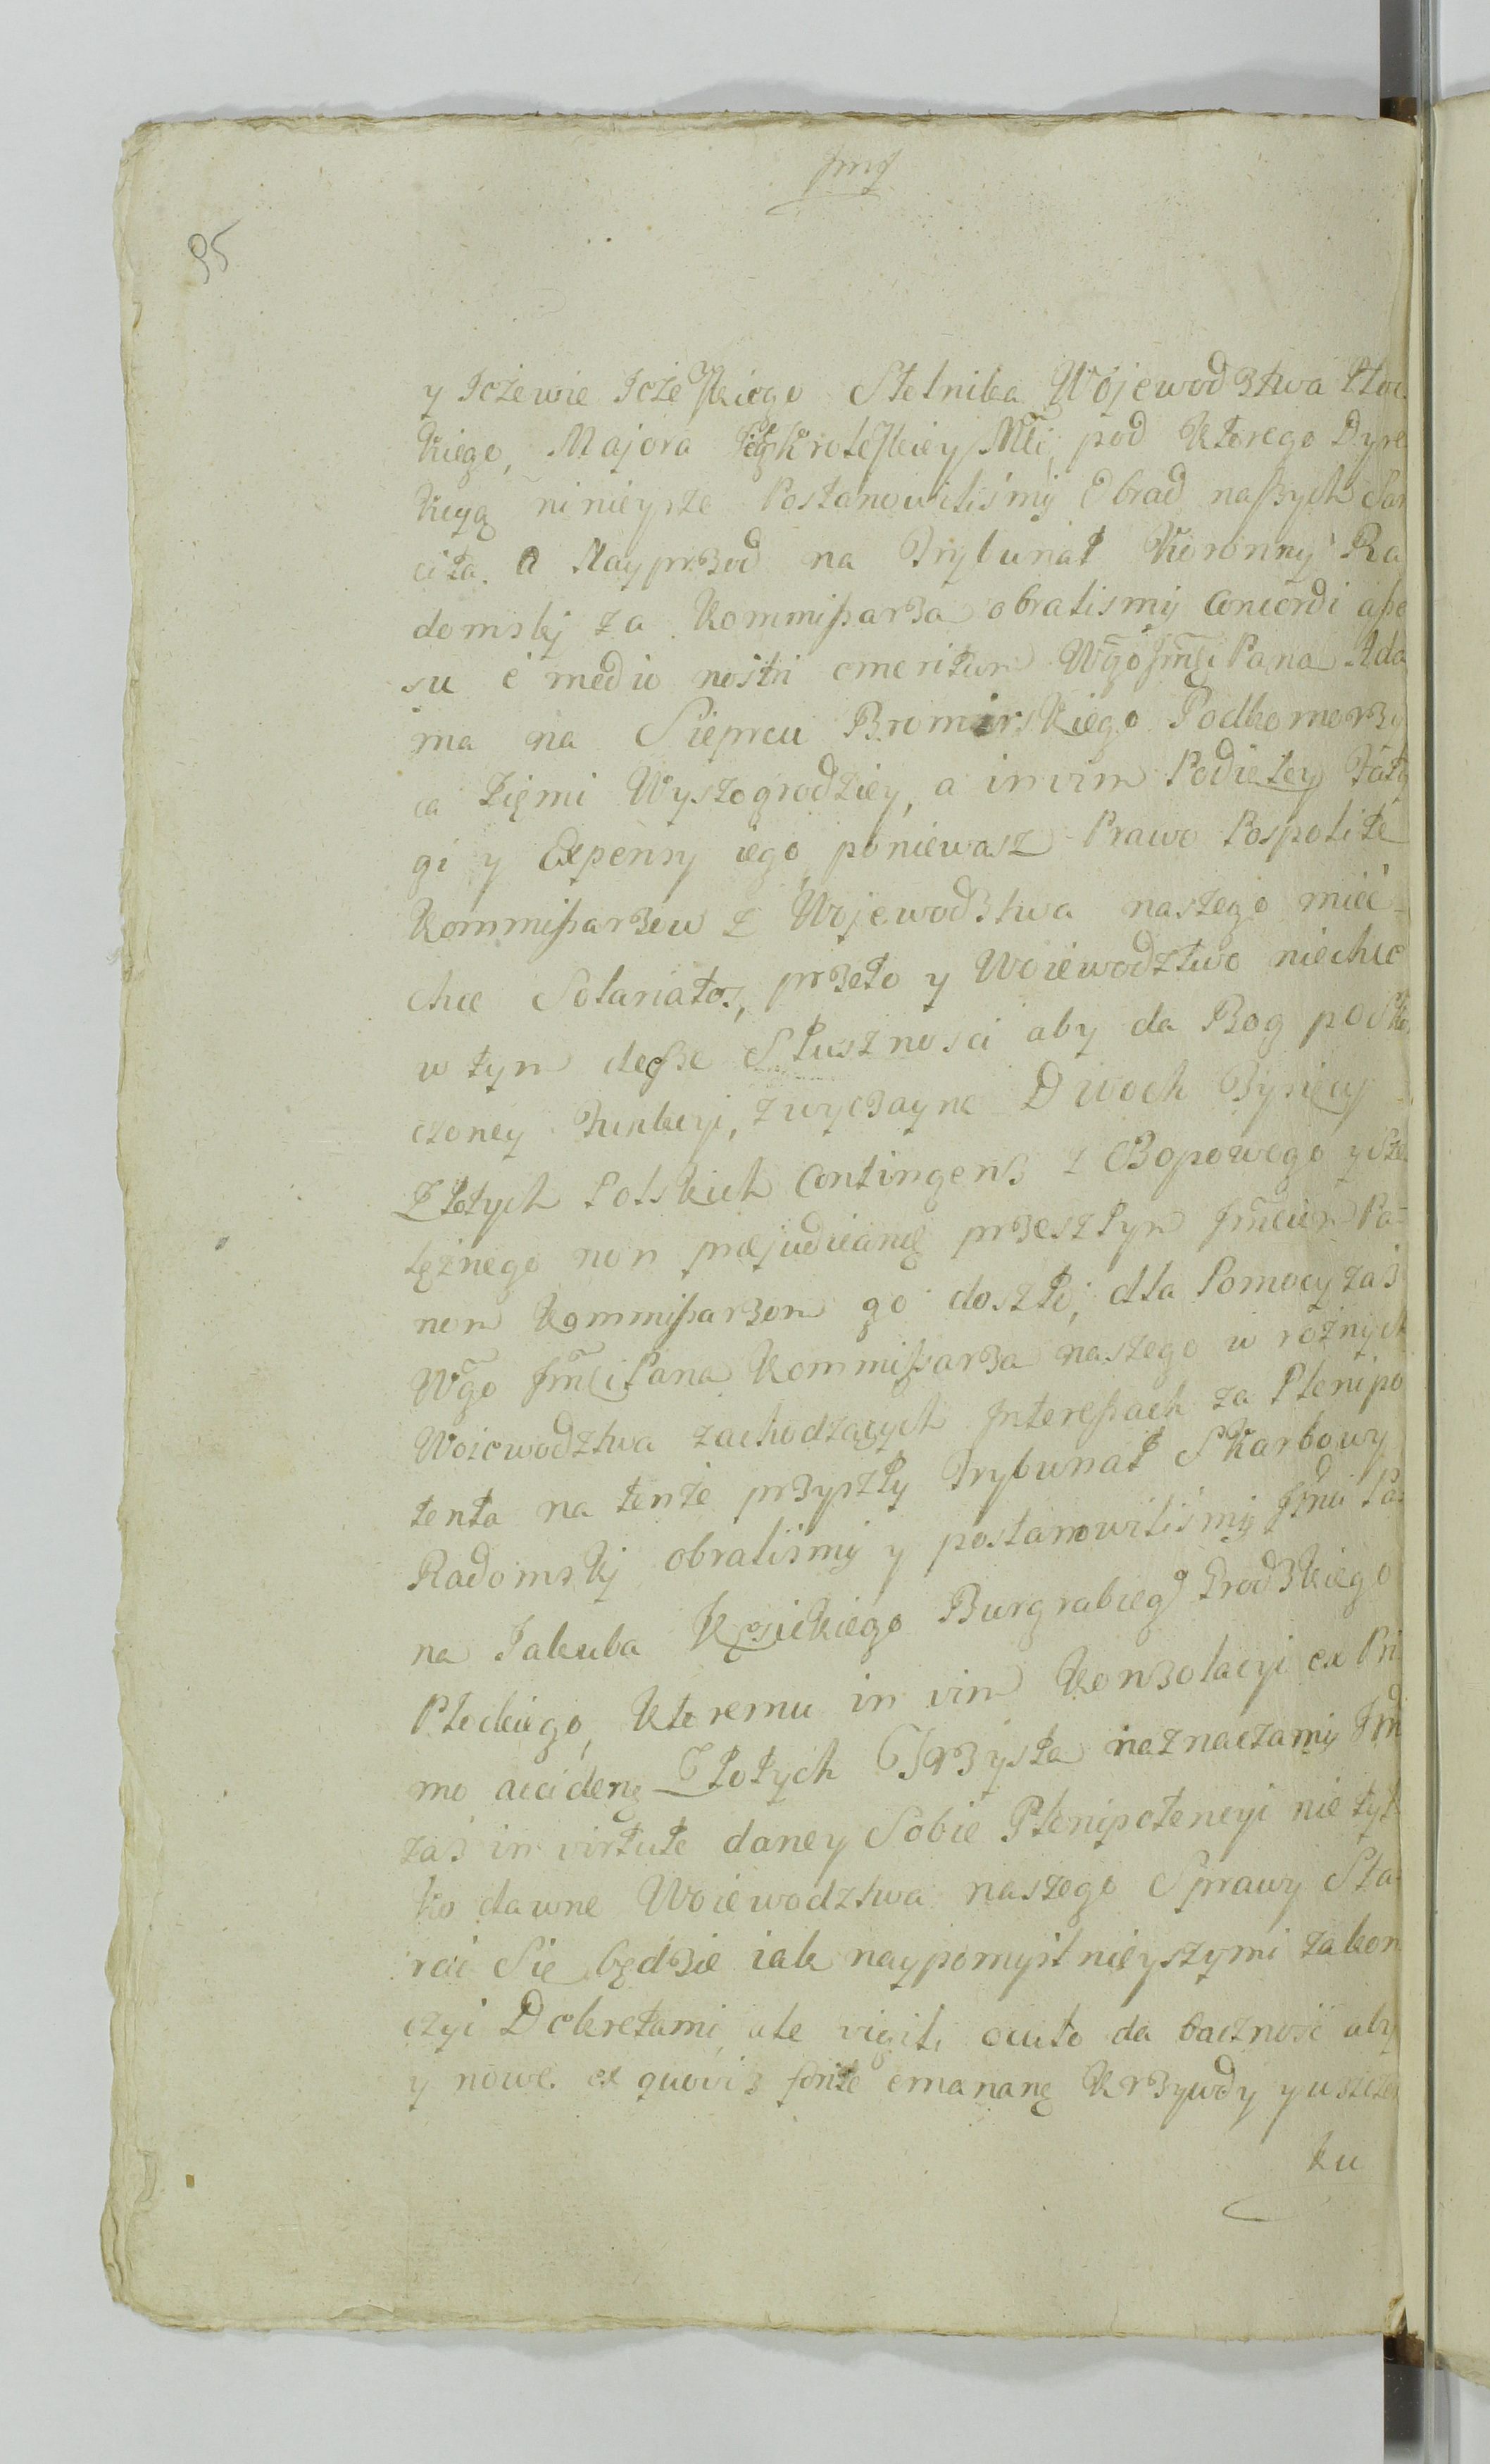 Jmſ
95
y Jeżewie Jeżeſkiego Stolnika Wojewodztwa Ploc
kiego, Majora Jego Kroleſkiey Mći, pod ktorego Dyre
kcyą ninieysze Postanowiliśmy Obrad naſzych San
cita. a Nayprzod na Trybunał Koronny Ra
domskj za Kommiſsarza obralismy Concordi aſsen
su é medio nostri emeritum Wgo Jmći Pana Ada
ma na Sieprcu Bromirskiego Podkomorzy
ca Ziemi Wyszogrodzkiey, a in vim Podiętey Faty
gi y Expensy iego ponieważ Prawo Pospolite
Kommiſsarzow z Wojewodztwa naszego mieć
chce Solariatos, przeto y Woiewodztwo niechce
w tym deeſse Słuszności aby da Bog po Sko
czoney Funkcyi, zwyczayne Dwoch Tysięcy
Złotych Polskich Contingens z Czopowego y Sze
lężnego non præjudicanę przeszłym Jmciom Pa
nom Kommiſsarzom go doszło, dla Pomocy zaś
Wgo Jmći Pana Kommiſsarza naszego w rożnych
Woiewodztwa zachodzących Jntereſsach za Plenipo
tenta na tenże przyszły Trybunał Skarbowy
Radomskj obralismy y postanowiliśmy Jmći Pa
na Jakuba Kęsickiego Burgrabiego Grodzkiego
Płockiego, ktoremu in vim Konsolacyi ex Pri
mo accidenę Złotych Trzysta naznaczamy Jm
zaś in virtute daney Sobie Plenipotencyi nie tyl
ko dawne Woiewodztwa naszego Sprawy Sta
rać Sie będzie iak naypomyslnieyszymi zakon
czyć Dekretami, ale vigili oculo da baczność aby
y nowe ex quovis fonte emananę Krzywdy y uszczer
ku